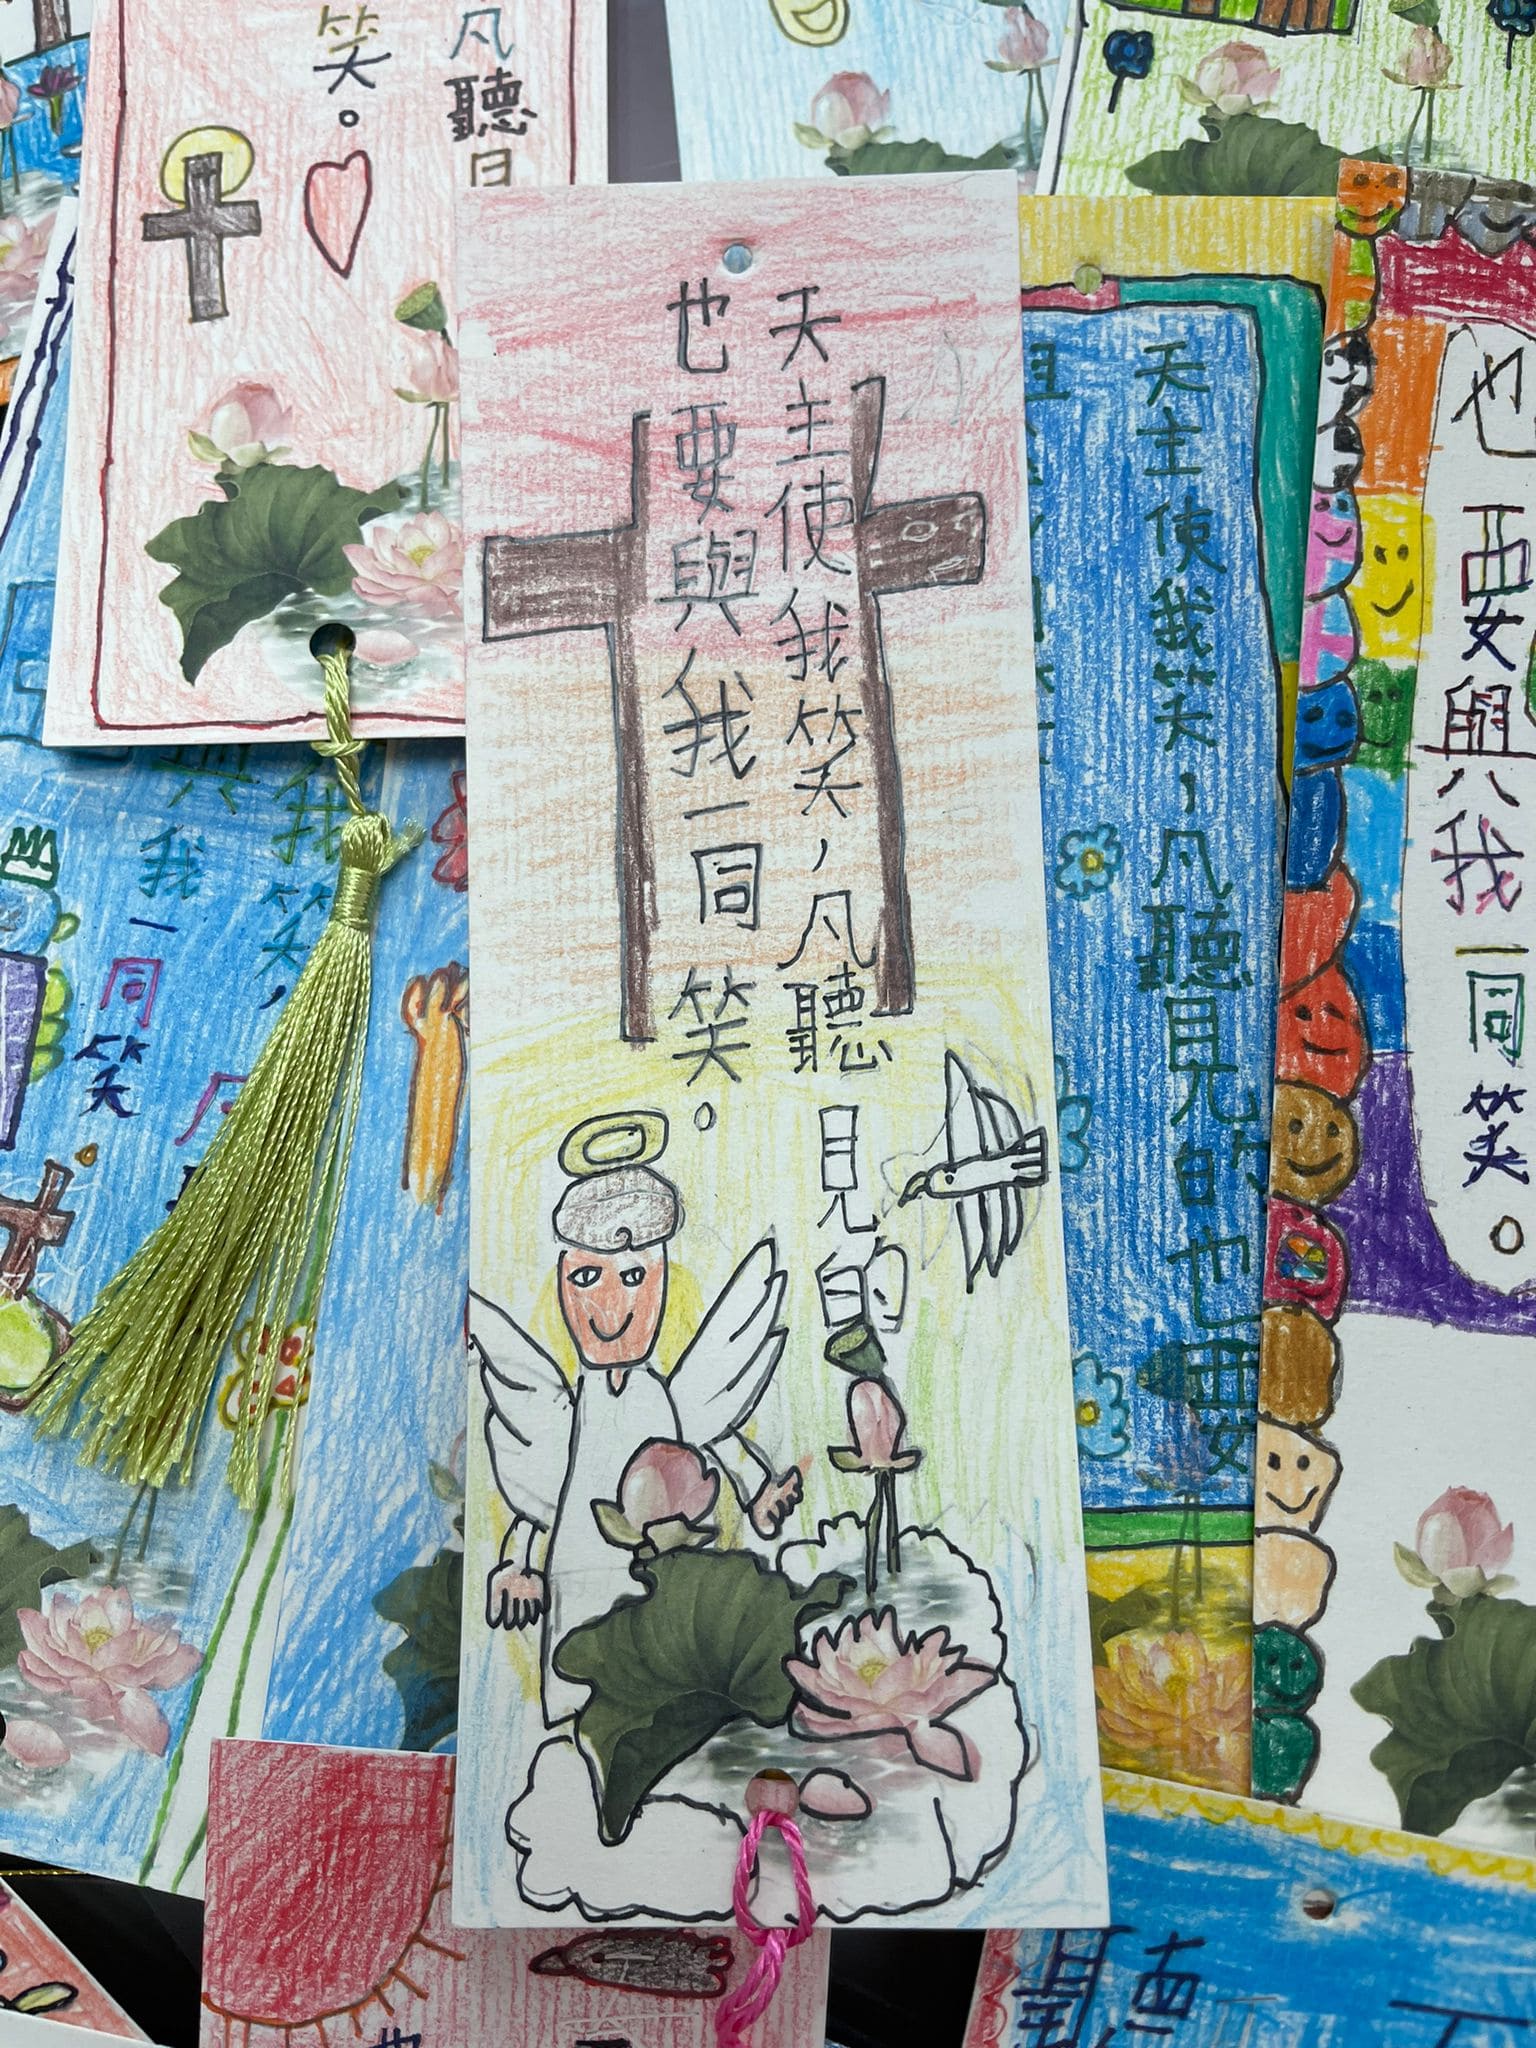 凡聽
笑。
天主使我笑，凡聽見的
也要與我一同笑。
天主使我笑，凡聽見的也要
也要與我一同笑。
我笑，
凡
我一同笑。
聽